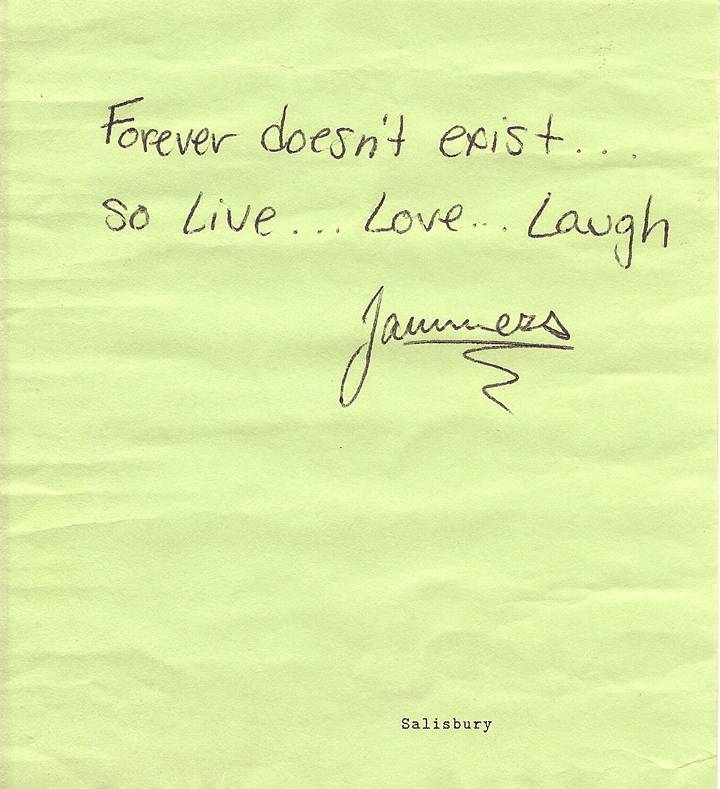 Forever doesn't exist...
so Live... Love... Laugh
Jammers
Salisbury